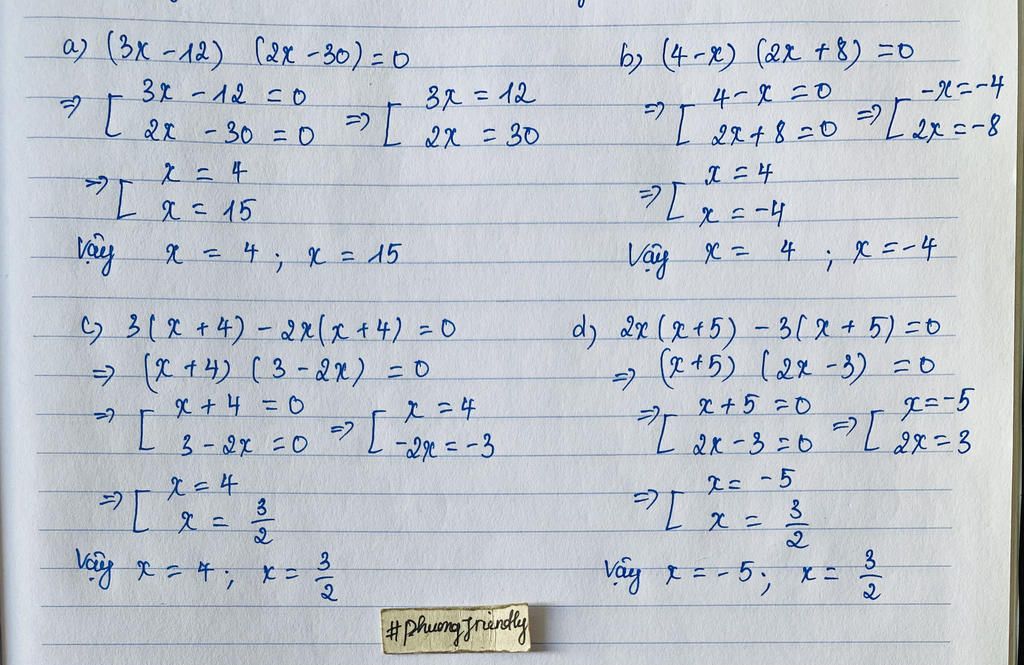 a) (3x - 12) (2x - 30) = 0
=> [ 3x - 12 = 0 => [ 3x = 12
2x - 30 = 0 2x = 30
=> [ x = 4
x = 15
Vậy x = 4 ; x = 15
b) (4 - x) (2x + 8) = 0
=> [ 4 - x = 0 => [ -x = -4
2x + 8 = 0 2x = -8
=> [ x = 4
x = -4
Vậy x = 4 ; x = -4
c) 3(x + 4) - 2x(x + 4) = 0
=> (x + 4) (3 - 2x) = 0
=> [ x + 4 = 0 => [ x = 4
3 - 2x = 0 -2x = -3
=> [ x = 4
x = 3/2
Vậy x = 4 ; x = 3/2
d) 2x(x + 5) - 3(x + 5) = 0
=> (x + 5) (2x - 3) = 0
=> [ x + 5 = 0 => [ x = -5
2x - 3 = 0 2x = 3
=> [ x = -5
x = 3/2
Vậy x = -5 ; x = 3/2
#phuongfriendly